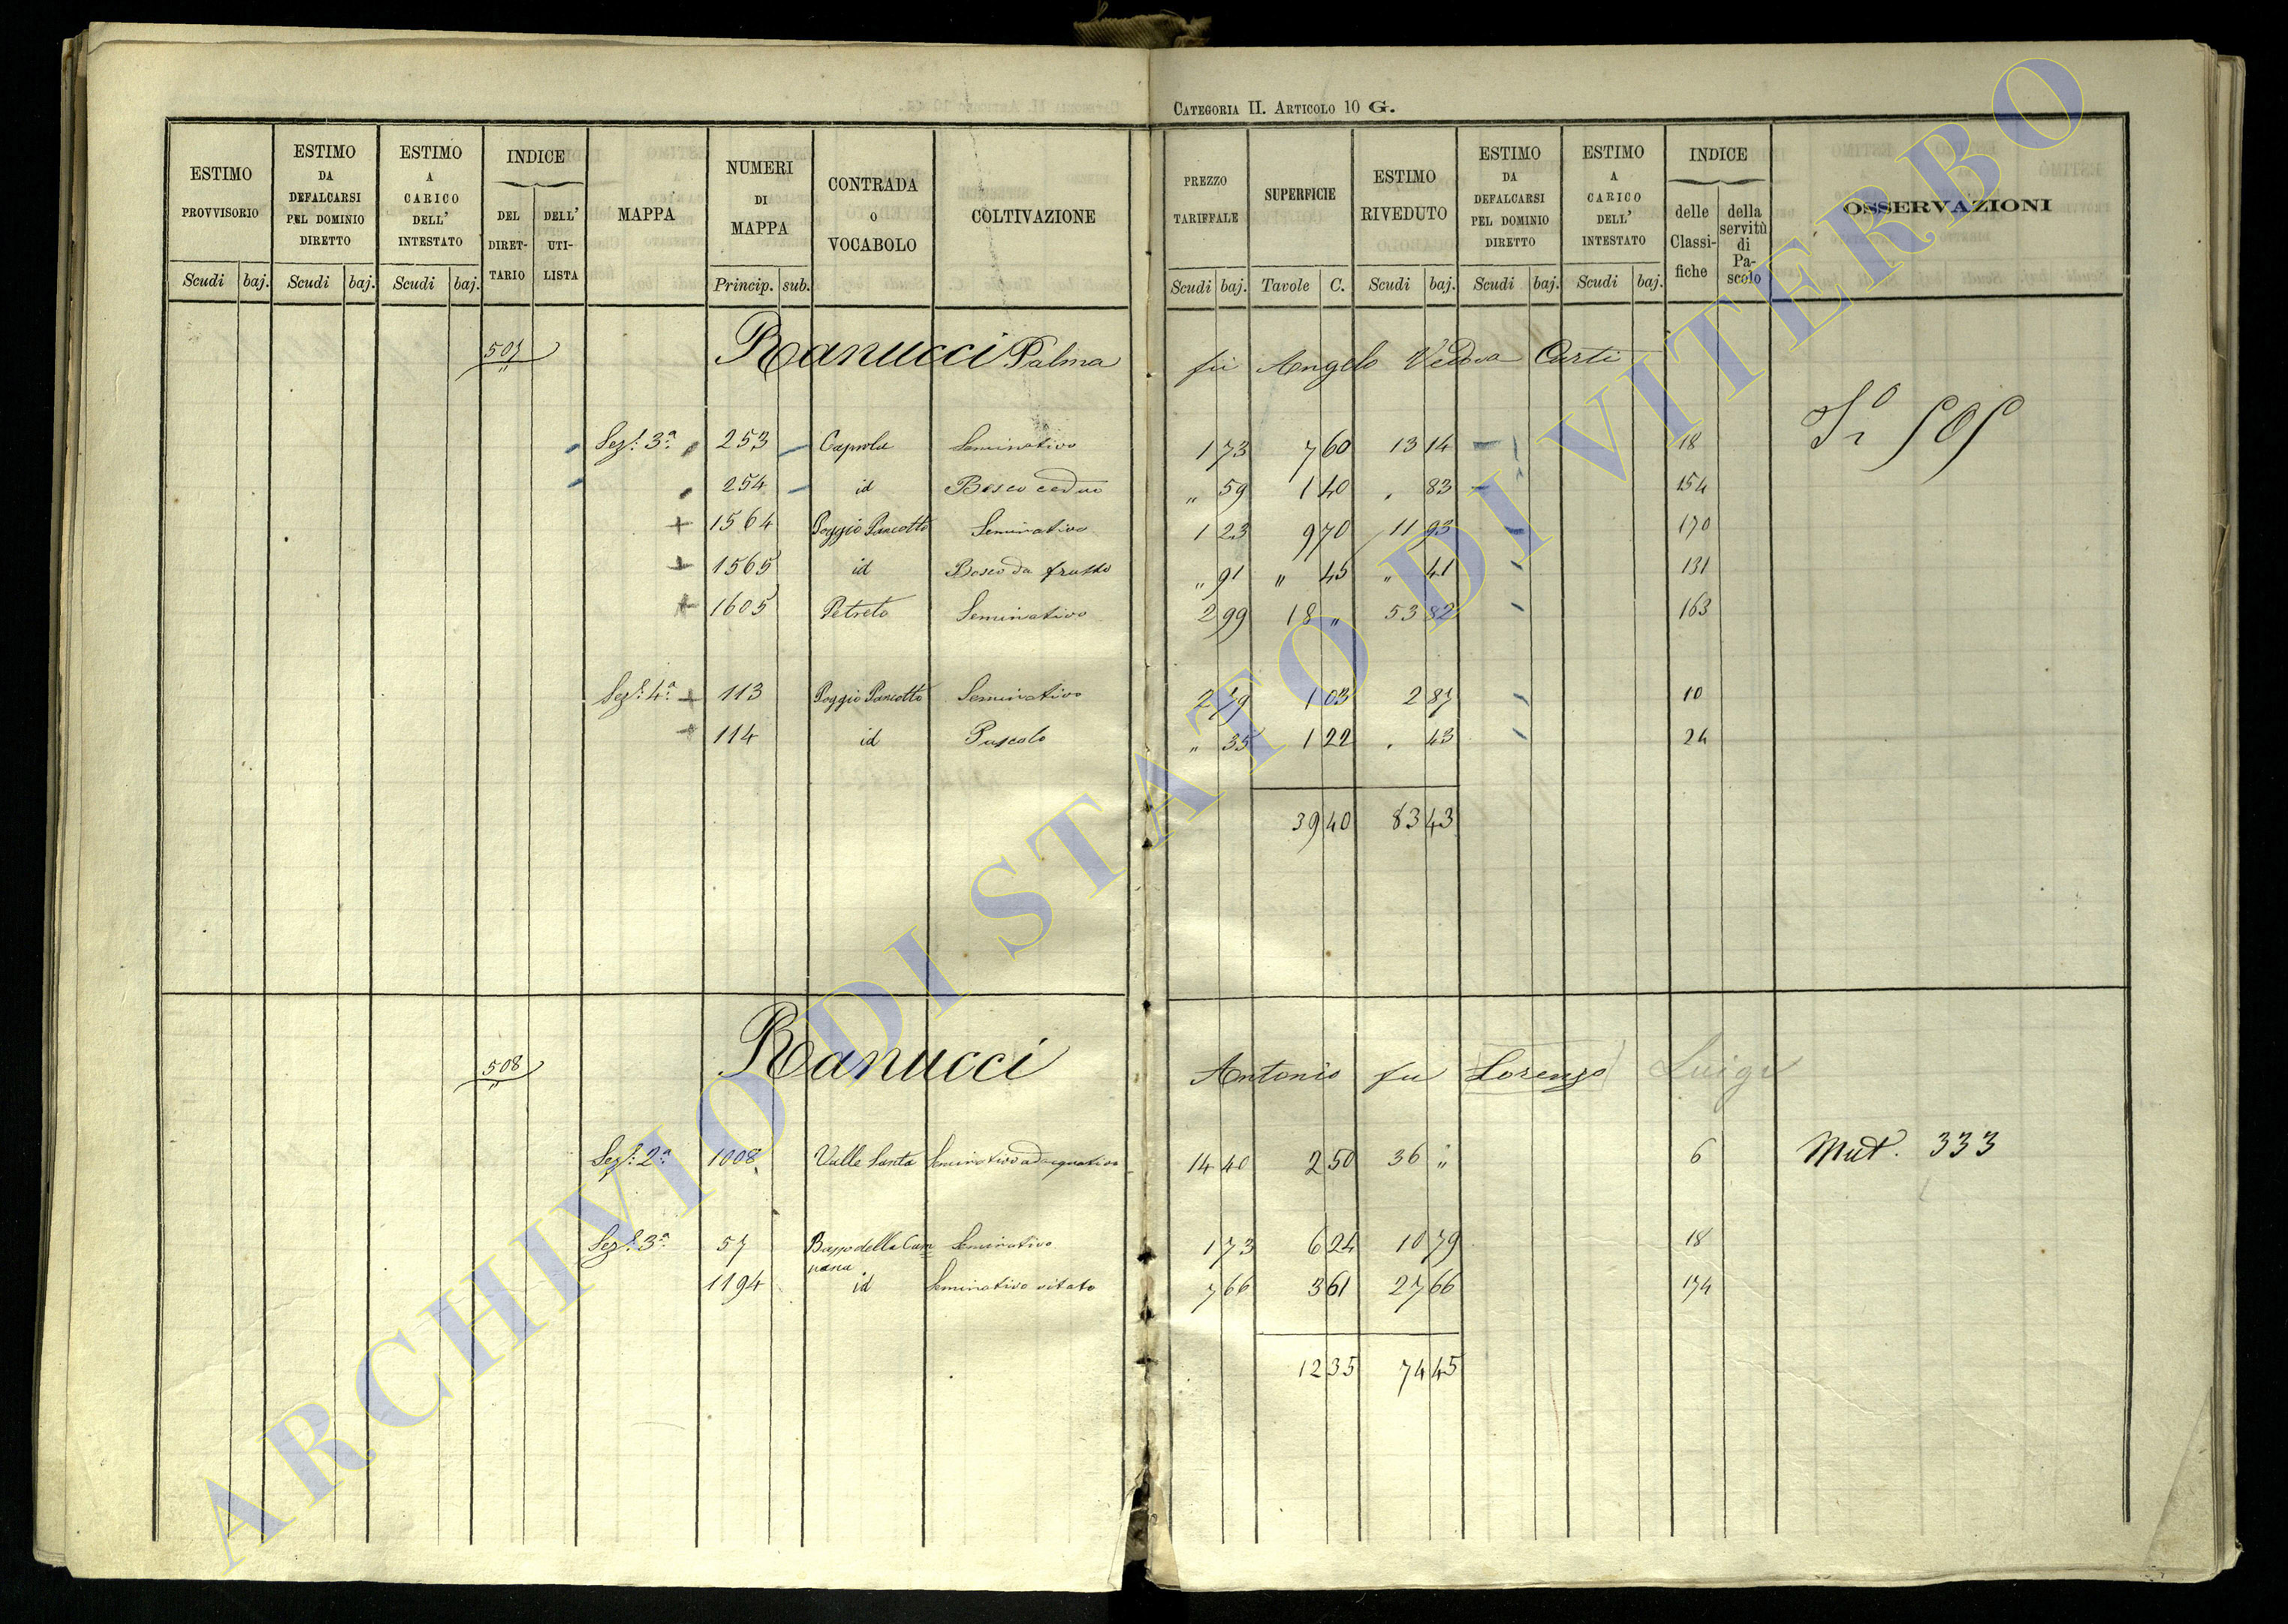 CATEGORIA II. ARTICOLO 10 G.
ESTIMO PROVVISORIO | ESTIMO DA DEFALCARSI PEL DOMINIO DIRETTO | ESTIMO A CARICO DELL' INTESTATO | INDICE DEL DIRET-TARIO | DELL' UTI-LISTA | MAPPA | NUMERI DI MAPPA | CONTRADA O VOCABOLO | COLTIVAZIONE | PREZZO TARIFFALE | SUPERFICIE | ESTIMO RIVEDUTO | ESTIMO DA DEFALCARSI PEL DOMINIO DIRETTO | ESTIMO A CARICO DELL' INTESTATO | INDICE delle Classi-fiche | della servitù di Pa-scolo | OSSERVAZIONI
Scudi baj. Scudi baj. Scudi baj. Princip. sub. Scudi baj. Tavole C. Scudi baj. Scudi baj. Scudi baj.
507 Ranucci Palma fù Angelo Vedova Curti
Sez.e 3a 253 Seminativo 1 73 7 60 13 14 18
254 id Bosco ceduo " 59 1 40 " 83 154
+ 1564 Poggio Pancotto Seminativo 1 23 9 70 11 93 170
+ 1565 id Bosco da frutto " 91 " 45 " 41 131
+ 1605 Petreto Seminativo 2 99 18 " 53 82 163
Sez.e 4a + 113 Poggio Pancotto Seminativo 2 79 1 03 2 87 10
+ 114 id Pascolo " 35 1 22 " 43 24
39 40 83 43
508 Ranucci Antonio fu Lorenzo Luigi
Sez.e 2a 1008 Valle Santa Seminativo adacquativo 14 40 2 50 36 " 6 Mut. 333
Sez.e 3a 57 Seminativo 1 73 6 24 10 79 18
1194 id Seminativo vitato 7 66 3 61 27 66 174
12 35 74 45
ARCHIVIO DI STATO DI VITERBO